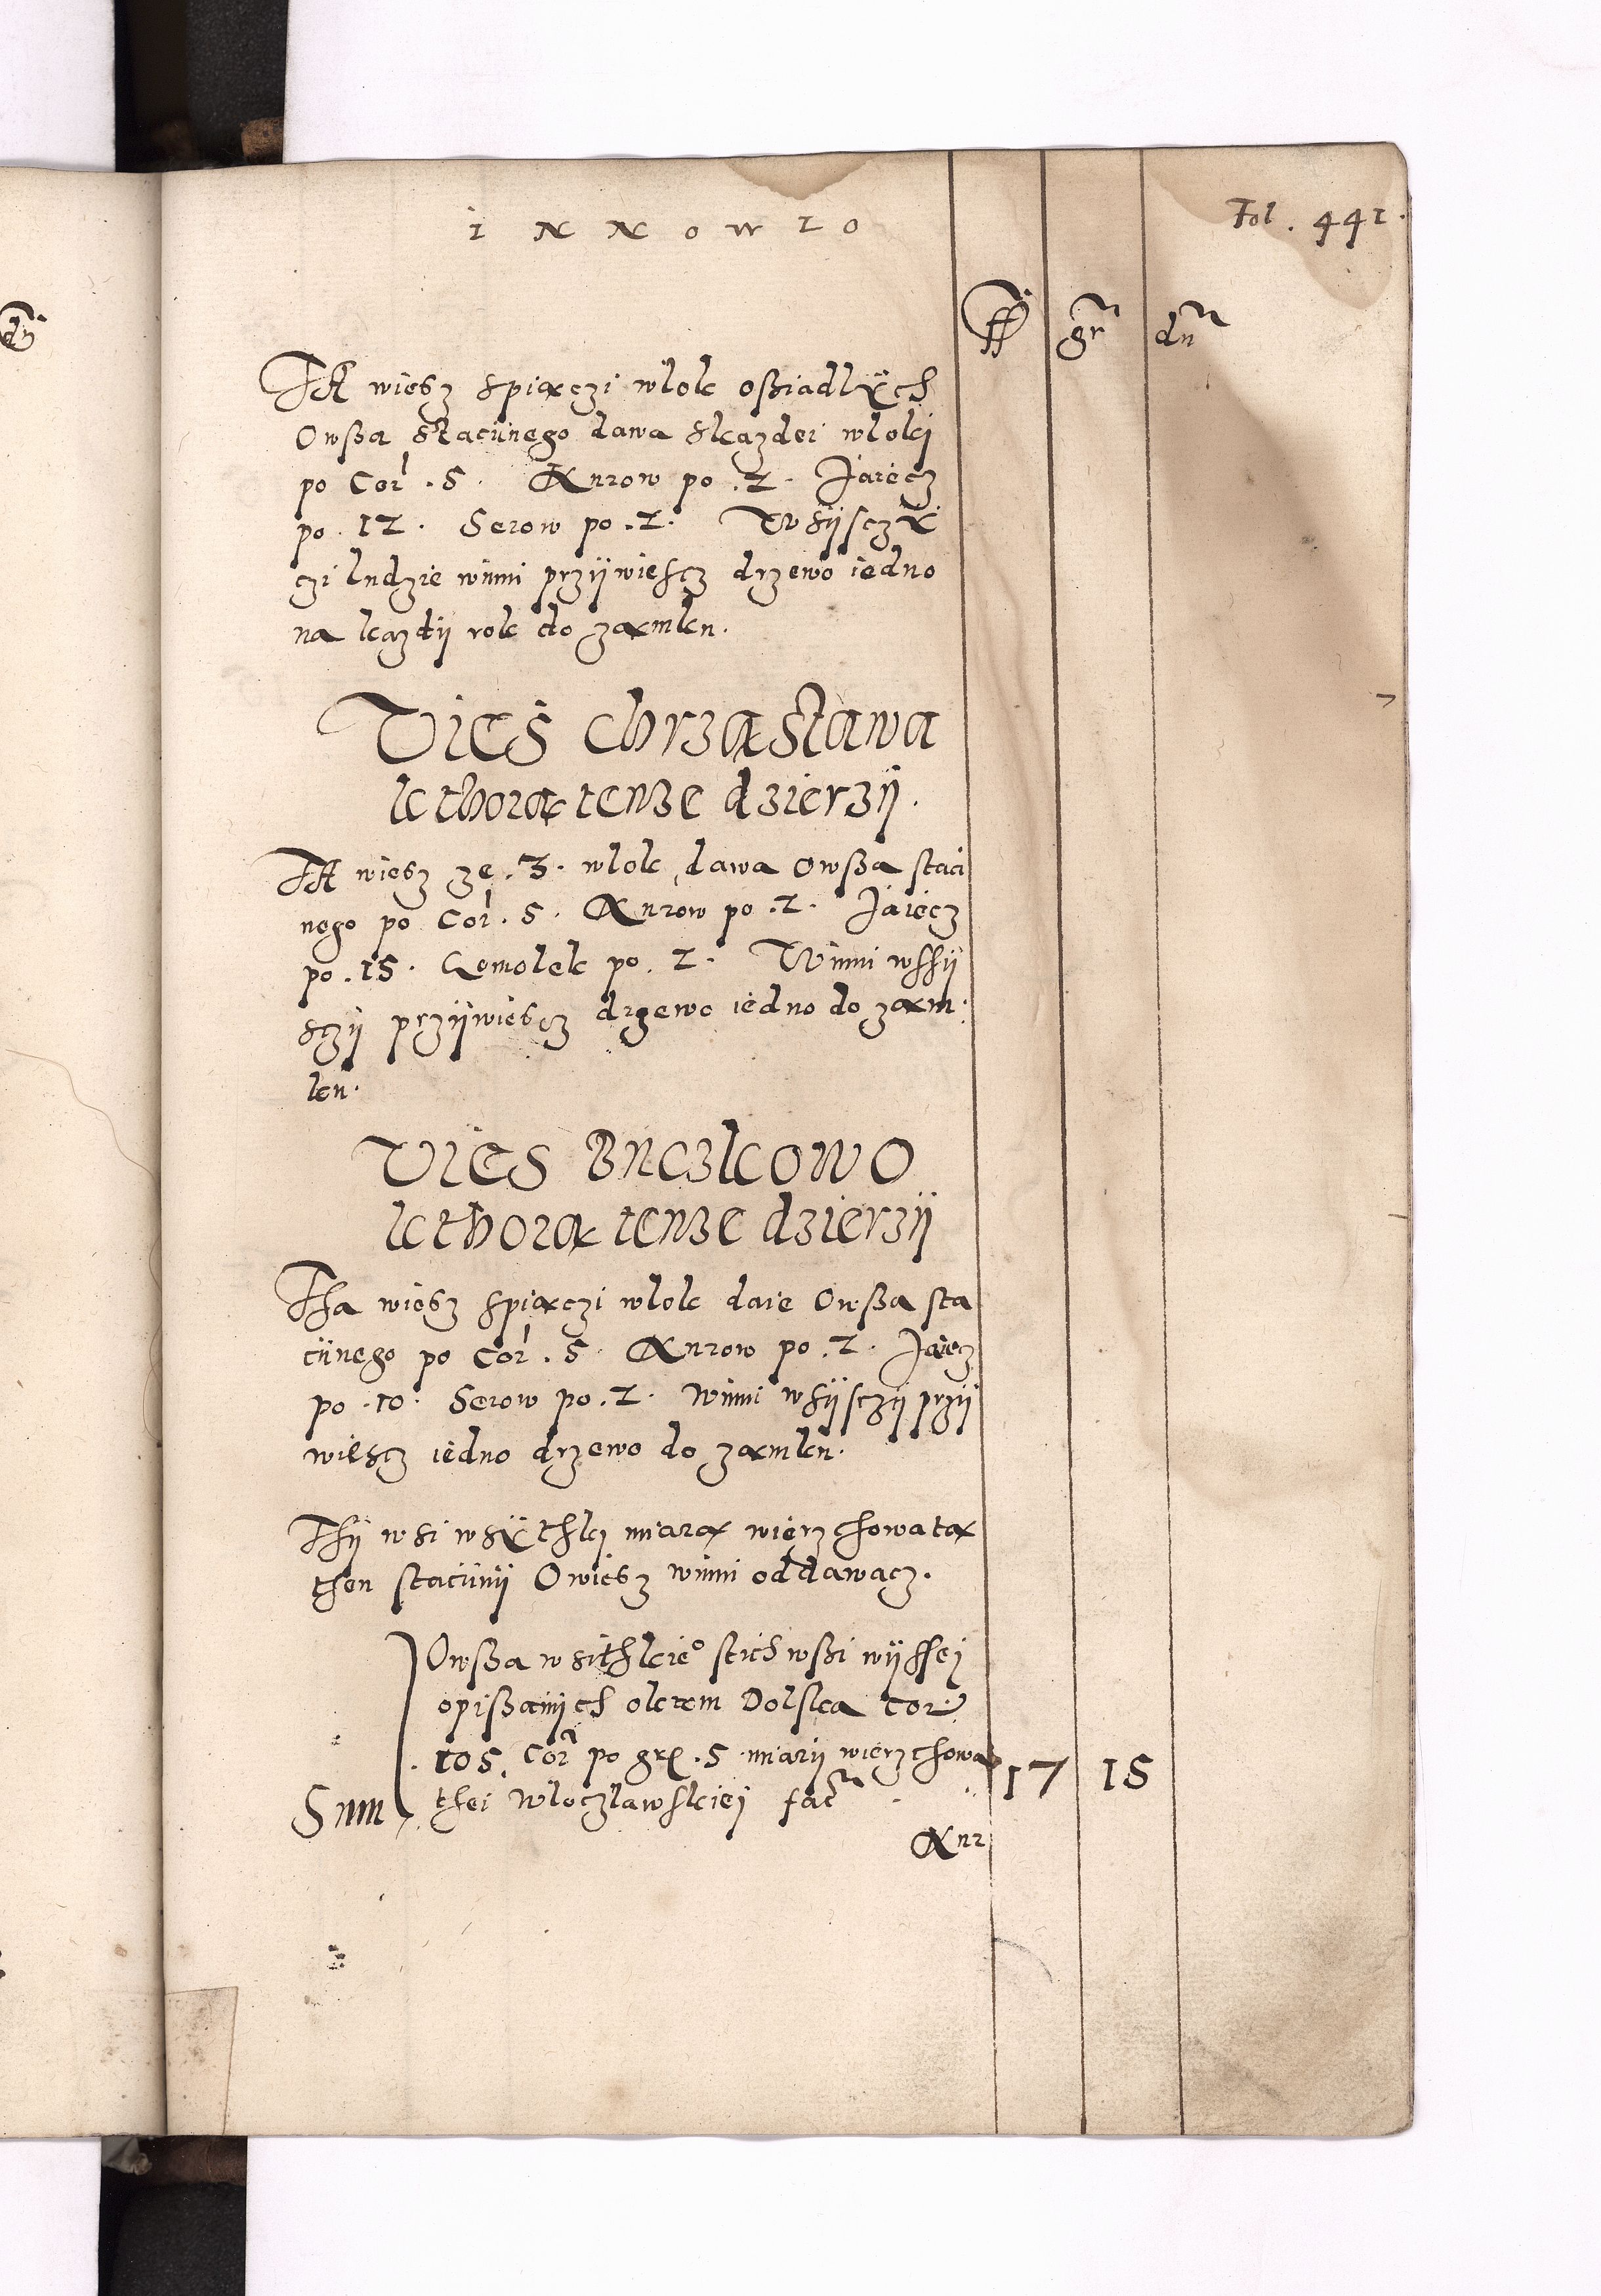 INNOWLO
Fol. 441.
ff gr dn
TA wiesz spiączi wlok osziadlÿch
Owsza stacÿnego dawa skazdei wloki
po Cor. 5. Kurow po .2. Jaiecz
po .12. Serow po .2. Wsÿsczÿ
czi ludzie winni przÿwiescz drzewo iedno
na kazdÿ rok do zamku.
VIES ChrząStawa
kthorą tenze dzierzÿ.
TA wiesz ze .3. wlok dawa Owsza staci
nego po Cor. 5. Kurow po .2. Jaiecz
po .15. Gomolek po .2. Winni wssÿ
sczÿ przÿwiescz drzewo iedno do zam
ku.
VIES BUCZKOWO
kthorą tenze dzierzÿ
Tha wiesz spiączi wlok daie Owsza sta
cÿnego po Cor. 5. Kurow po .2. Jaiecz
po .10. Serow po .2. Winni wsÿsczÿ przÿ
wiescz iedno drzewo do zamku.
Thÿ wsi wsÿthki miarą wierzchowatą
then stacÿnÿ Owiesz winni oddawacz.
Owsza wsithkieo stich wszi wÿssei
opiszanich okrom Dolska Cor
105. Cor po gr. 5. miarÿ wierzchowa
Sum thei Wloczlawskiei fac 17 15
Kur